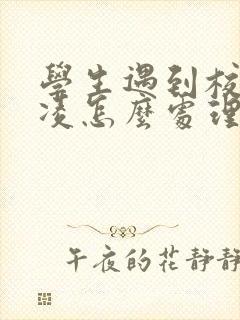 學生遇到校
凌怎麼處理
午夜的花靜靜